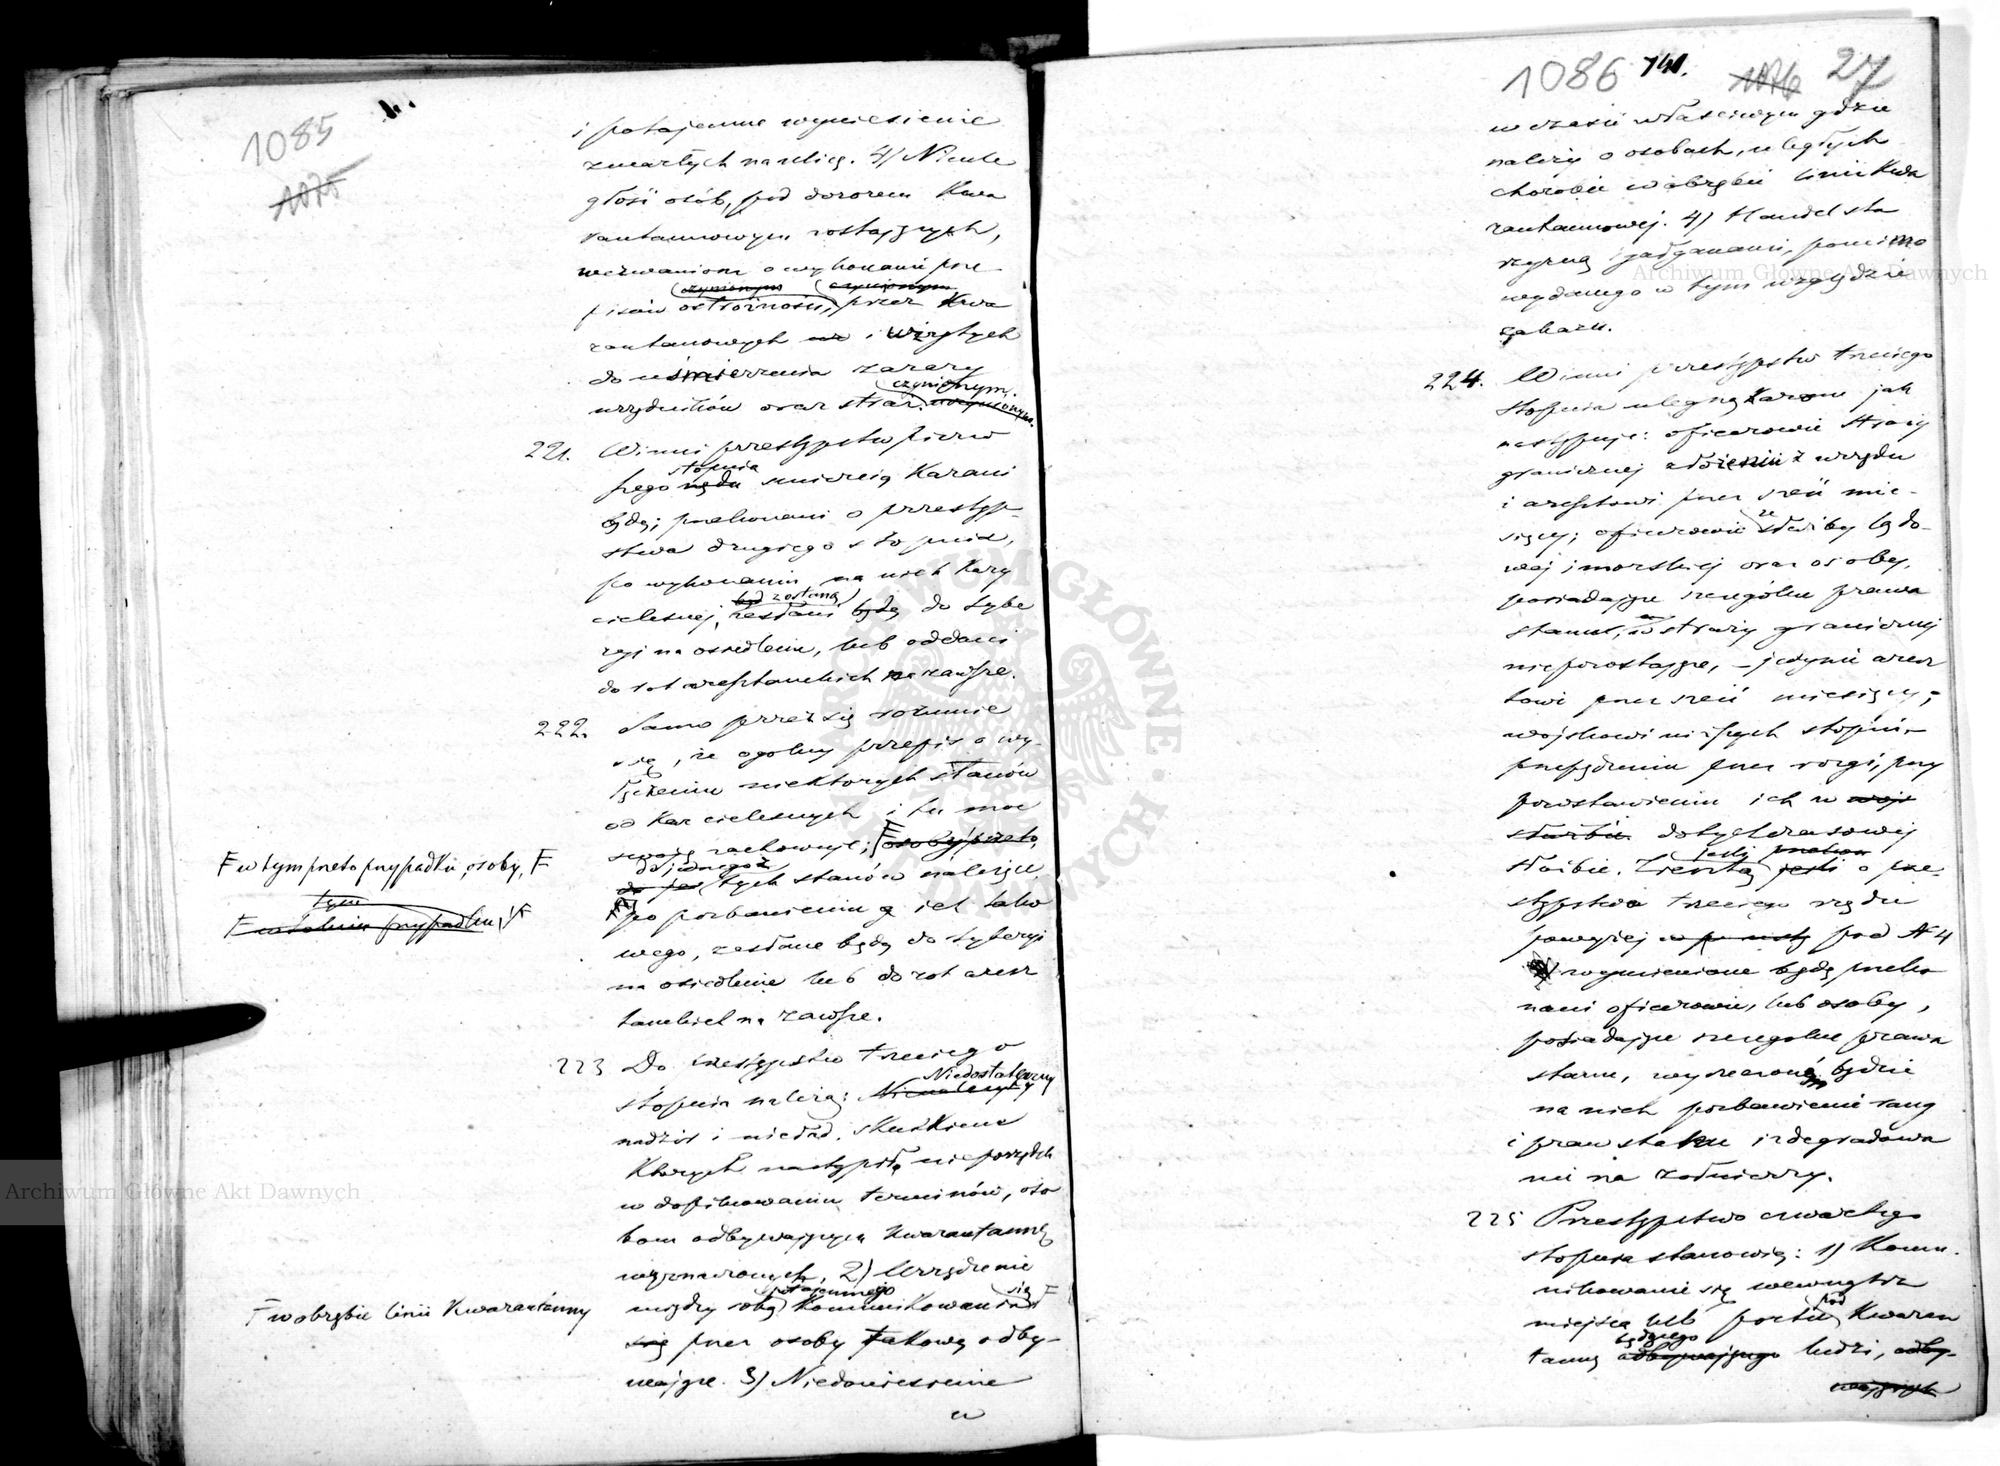 1085
1075
i potajemne wyniesienie
zmarłych na ulicę. 4) Nieule
głość osób, pod dozorem Kwa
rantannowym zostających,
wezwaniom o wykonanie prze
czynionym czynionym
pisów ostrożności, przez Kwa
rantanowych i wziętych
do uśmierzenia zarazy
czynionym
urzędników oraz straż.
221. Winni przestępstw pierw
stopnia
szego rzędu śmiercią Karani
będą; przekonani o przestęp-
stwa drugiego stopnia,
po wykonaniu na nich Kary
zostaną
cielesnej, zesłani będą do Sybe
ryi na osiedlenie, lub oddani
do rot aresztanckich na zawsze.
222. Samo przez się rozumie
się, że ogólny przepis o wy-
łączeniu niektórych stanów
od Kar cielesnych i tu moc
swoją zachowuje; F osoby przeto,
do jednegoż
tych stanów należące,
po pozbawieniu ich tako
wego, zesłane będą do Syberyi
na osiedlenie lub do rot aresz
tanckich na zawsze.
F w tym przeto przypadku, osoby, F
tym
F w takim przypadku, F
223 Do przestępstw trzeciego
Niedostateczny
stopnia należą: Nienależyty
nadzór i nieład, skutkiem
których nastąpiły nieporządki
w dopilnowaniu terminów, oso
bom odbywającym Kwarantannę
wyznaczonych, 2) Urządzenie
potajemnego się
między sobą Komunikowania F
się przez osoby takową odby-
wające. 3) Niedoniesienie
w
F w obrębie linii Kwarantanny
1086 741. 1076 27
w czasie właściwym gdzie
należy o osobach, uległych
chorobie w obrębie linii Kwa
rantannowej. 4) Handel sta
rzyzną i gałganami, pomimo
wydanego w tym względzie
zakazu.
224. Winni przestępstw trzeciego
stopnia ulegną Karom jak
następuje: oficerowie straży
granicznej złożeniu z urzędu
i aresztowi przez sześć mie-
ze
sięcy; oficerowie służby lądo-
wej i morskiej oraz osoby,
posiadające szczególne prawa
stanu, w straży granicznej
niepozostające, – jedynie aresz
towi przez sześć miesięcy;
wojskowi niższych stopni –
przepędzeniu przez rózgi, przy
pozostawieniu ich w wojs
służbie dotychczasowej
jeśli przekon
służbie. Zresztą jeśli o prze-
stępstwa trzeciego rzędu
powyżej pod N 4
wymienione będą przeko
nani oficerowie, lub osoby,
posiadające szczególne prawa
stanu, wyrzeczonem będzie
na nich pozbawienie rang
i praw stanu i zdegradowa
nie na żołnierzy.
225 Przestępstwo czwartego
stopnia stanowią: 1) Komu-
nikowanie się wewnątrz
pod
miejsca lub portu Kwaran
będącego
tanną odbywającego ludzi, odby-
wających
Archiwum Główne Akt Dawnych
Archiwum Główne Akt Dawnych
ARCHIWUM GŁÓWNE AKT DAWNYCH